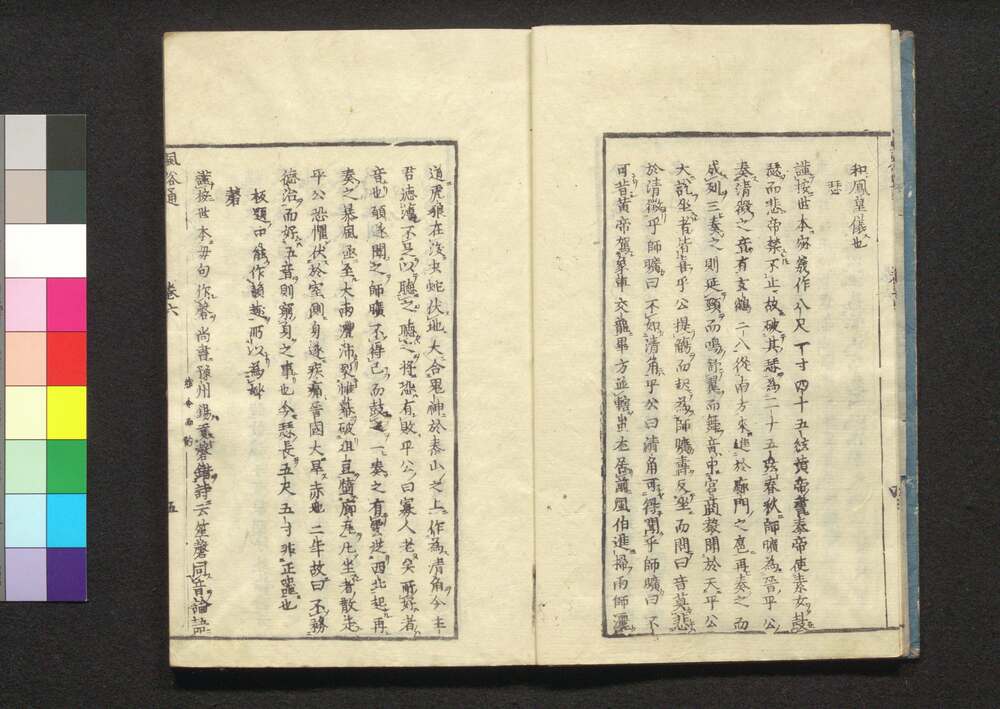 和鳳皇儀也
瑟
謹按世本宓羲作八尺丁寸四十五絃黄帝書泰帝使素女鼓
瑟而悲帝禁不止故破其瑟為二十五絃春秋師曠為晉平公
奏清徵之音有玄鶴二八從南方來進於廊門之扈再奏之而
成列三奏之則延頸而鳴舒翼而舞音中宮商聲聞於天平公
大說坐者皆喜平公提觴而起為師曠壽反坐而問曰音莫悲
於清徵乎師曠曰不如清角平公曰清角可得聞乎師曠曰不
可昔黄帝駕象車交龍畢方並轄蚩尤居前風伯進掃雨師灑
道虎狼在後虫蛇伏地大合鬼神於泰山之上作為清角今主
君德薄不足以聽之聽之將恐有敗平公曰寡人老矣所好者
音也願遂聞之師曠不得已而鼓之一奏之有雲從西北起再
奏之暴風亟至大雨澧沛裂帷幕破俎豆墮廊瓦凡坐者散走
平公恐懼伏於室側身遂疾痛晉國大旱赤地二年故曰不務
德治而好五音則窮身之事也今瑟長五尺五寸非正器也
磬
謹按世本毋句作磬尚書豫州錫貢磬錯詩云笙磬同音論語
風俗通
卷六
五